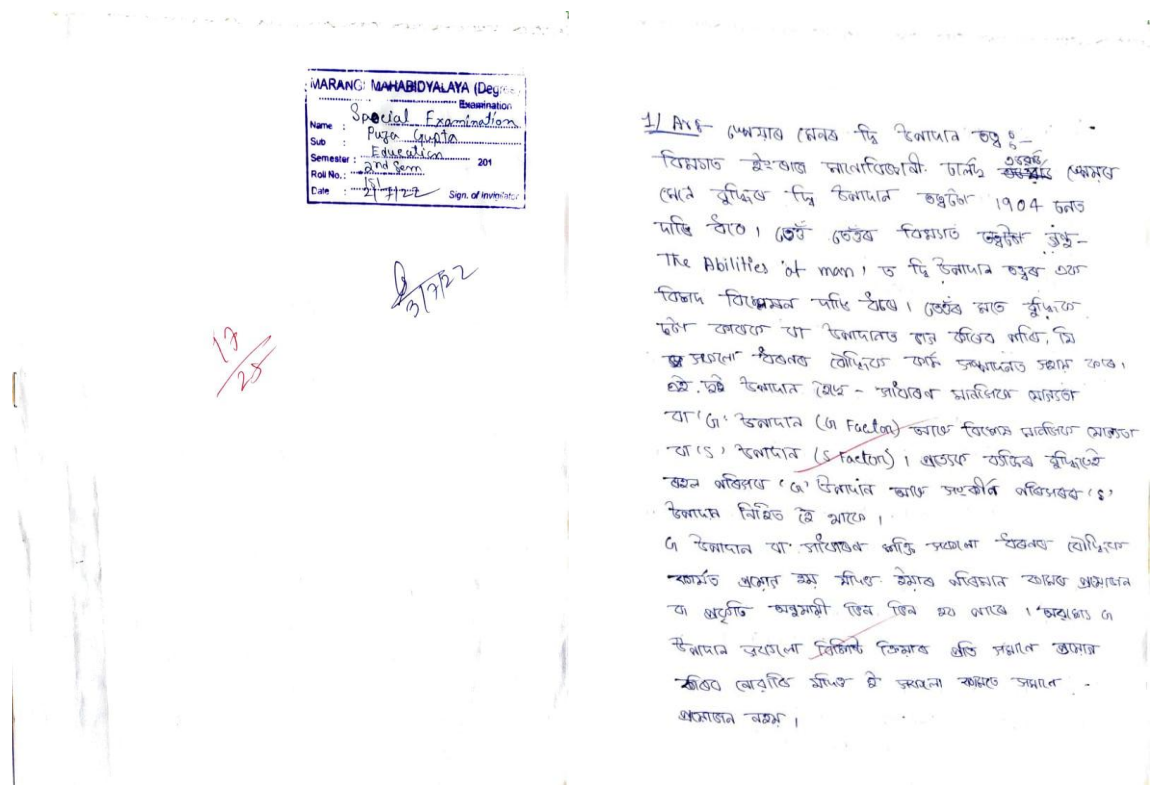 MARANGI MAHABIDYALAYA (Degree
Examination
Special Examination
Name : Puja Gupta
Sub : Education
Semester : 2nd Sem 201
Roll No. : 151
Date : 2/7/22 Sign. of Invigilator
3/7/22
17/25
1) Ans স্পেয়াৰ মেনৰ দ্বি উপাদান তত্ত্ব ঃ-
বিখ্যাত ইংৰাজ মনোবিজ্ঞানী চাৰ্লচ এডৱাৰ্ড স্পেয়াৰ
মেনে বুদ্ধিৰ দ্বি উপাদান তত্ত্বটো 1904 চনত
দাঙি ধৰে। তেওঁ তেওঁৰ বিখ্যাত গ্ৰন্থ-
The Abilities of man, ত দ্বি উপাদান তত্ত্বৰ এক
বিশদ বিশ্লেষণ দাঙি ধৰে। তেওঁৰ মতে বুদ্ধিক
দুটা কাৰক বা উপাদানত ভাগ কৰিব পাৰি, যি
সকলো ধৰণৰ বৌদ্ধিক কাৰ্য সম্পাদনত সহায় কৰে।
এই দুই উপাদান হৈছে - সাধাৰণ মানসিক যোগ্যতা
বা 'G' উপাদান (G Factor) আৰু বিশেষ মানসিক যোগ্যতা
বা 'S' উপাদান (S Factor)। প্ৰত্যেক ব্যক্তিৰ বুদ্ধিতেই
বহল পৰিসৰৰ 'G' উপাদান আৰু সংকীৰ্ণ পৰিসৰৰ 'S'
উপাদান নিহিত হৈ থাকে।
G উপাদান বা সাধাৰণ শক্তি সকলো ধৰণৰ বৌদ্ধিক
কাৰ্যত প্ৰয়োগ হয় যদিও ইয়াৰ পৰিমাণ কামৰ প্ৰয়োজন
বা প্ৰকৃতি অনুযায়ী ভিন ভিন হব পাৰে। G
উপাদান সকলো বিশিষ্ট ক্ৰিয়াৰ প্ৰতি সমানে প্ৰয়োগ
কৰিব নোৱাৰি যদিও ই সকলো কামতে সমানে
প্ৰয়োজন নহয়।